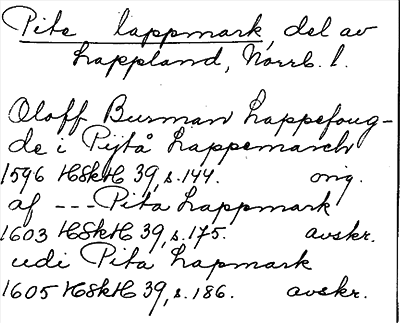 Pite lappmark, del av
Lappland, Norrb. l.
Oloff Burman Lappefoug-
de i Pijtå Lappemarch
1596 HSkH 39, s. 144. orig.
af --- Pita Lappmark
1603 HSkH 39, s. 175. avskr.
udi Pita Lapmark
1605 HSkH 39, s. 186. avskr.